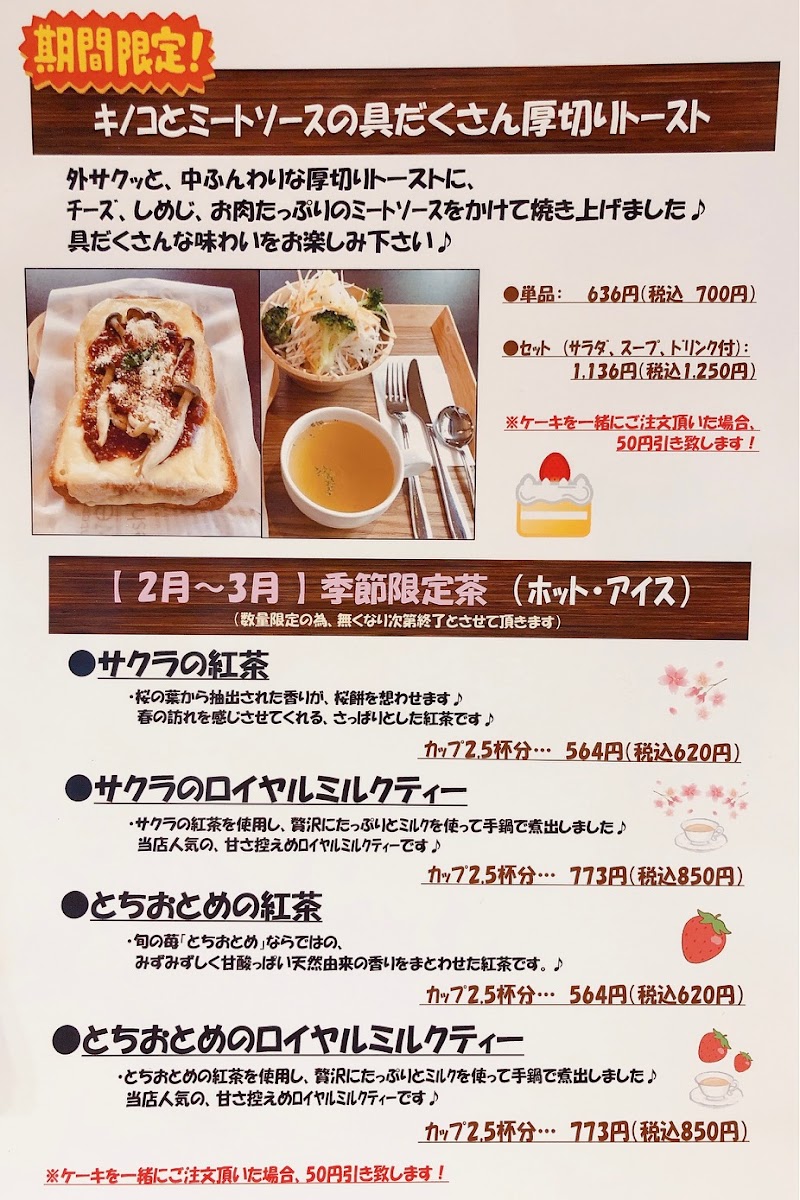 期間限定！
キノコとミートソースの具だくさん厚切りトースト
外サクッと、中ふんわりな厚切りトーストに、
チーズ、しめじ、お肉たっぷりのミートソースをかけて焼き上げました♪
具だくさんな味わいをお楽しみ下さい♪
●単品： 636円(税込 700円)
●セット (サラダ、スープ、ドリンク付)：
1,136円(税込1,250円)
※ケーキを一緒にご注文頂いた場合、
50円引き致します！
【 2月～3月 】季節限定茶 （ホット・アイス）
(数量限定の為、無くなり次第終了とさせて頂きます)
●サクラの紅茶
・桜の葉から抽出された香りが、桜餅を想わせます♪
春の訪れを感じさせてくれる、さっぱりとした紅茶です♪
カップ2.5杯分… 564円(税込620円)
●サクラのロイヤルミルクティー
・サクラの紅茶を使用し、贅沢にたっぷりとミルクを使って手鍋で煮出しました♪
当店人気の、甘さ控えめロイヤルミルクティーです♪
カップ2.5杯分… 773円(税込850円)
●とちおとめの紅茶
・旬の苺「とちおとめ」ならではの、
みずみずしく甘酸っぱい天然由来の香りをまとわせた紅茶です。♪
カップ2.5杯分… 564円(税込620円)
●とちおとめのロイヤルミルクティー
・とちおとめの紅茶を使用し、贅沢にたっぷりとミルクを使って手鍋で煮出しました♪
当店人気の、甘さ控えめロイヤルミルクティーです♪
カップ2.5杯分… 773円(税込850円)
※ケーキを一緒にご注文頂いた場合、50円引き致します！